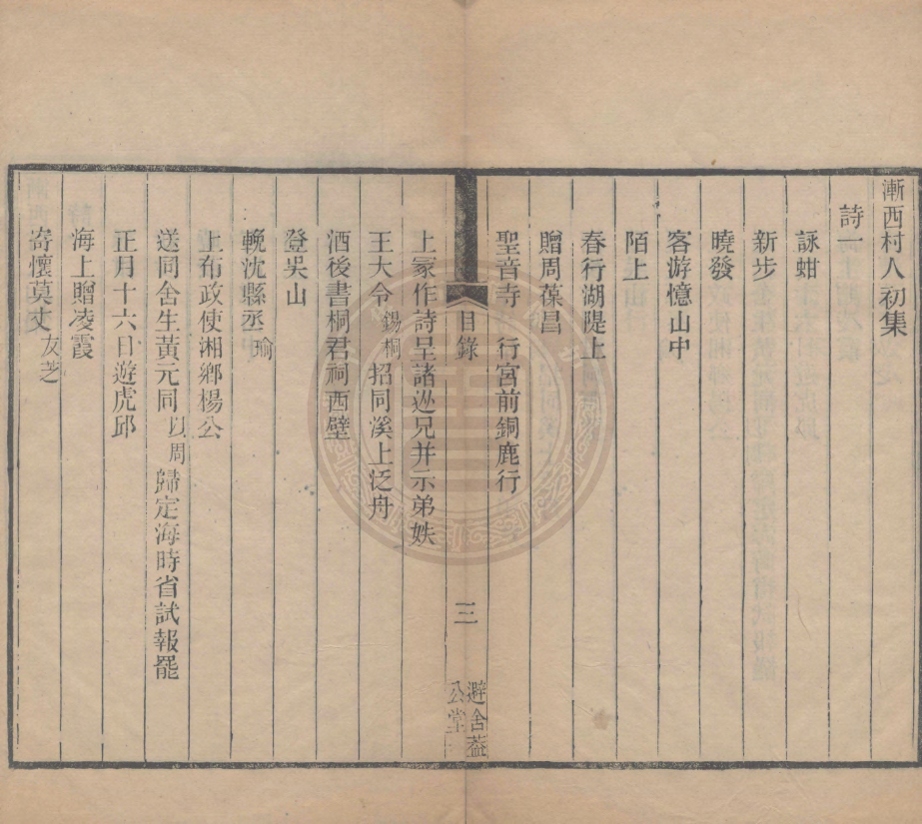 漸西村人初集
詩一
詠蚶
新步
曉發
客游憶山中
陌上
春行湖隄上
贈周葆昌
聖音寺 行宮前銅鹿行
目錄
三
避舍葢
公堂
上冢作詩呈諸逊兄并示弟妷
王大令錫桐招同溪上泛舟
酒後書桐君祠西壁
登吳山
輓沈縣丞瑜
上布政使湘鄉楊公
送同舍生黃元同以周歸定海時省試報罷
正月十六日遊虎邱
海上贈凌霞
寄懷莫丈友芝